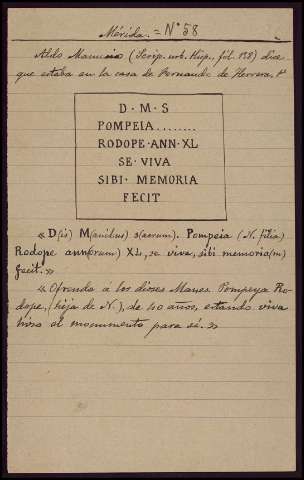 Mérida. = Nº 58
Aldo Manucio (Scrip. urb. Hisp. fol. 128) dice
que estaba en la casa de Fernando de Herrera.
D · M · S
POMPEIA........
RODOPE · ANN · XL
SE · VIVA
SIBI · MEMORIA
FECIT
« D(is) M(anibus) s(acrum). Pompeia (N. filia)
Rodope ann(orum) XL, se viva, sibi memoria(m)
fecit. »
« Ofrenda á los dioses Manes. Pompeya Ro-
dope, (hija de N.), de 40 años, estando viva
hizo el monumento para sí. »